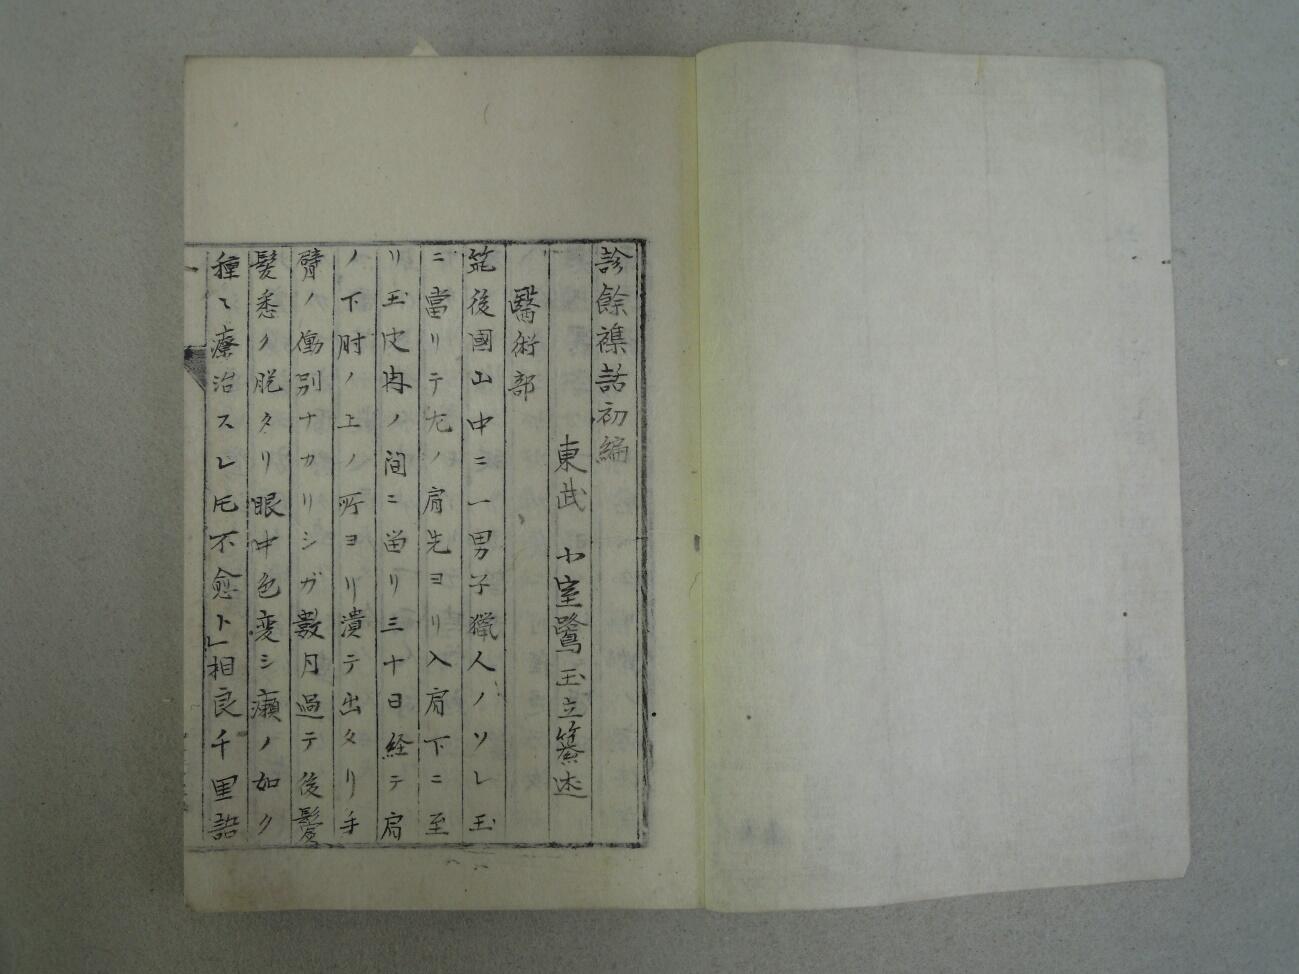 診餘襍話初編
東武 小室鷺玉立纂述
醫術部
筑後國山中ニ一男子獵人ノソレ玉
ニ當リテ尤ノ肩先ヨリ入肩下ニ至
リ玉皮肉ノ間ニ留リ三十日経テ肩
ノ下肘ノ上ノ所ヨリ潰テ出タリ手
臂ノ働別ナカリシガ數月過テ後鬢
髮悉ク脱タリ眼中色変シ癩ノ如ク
種〻療治スレ𪜈不愈ト」相良千里話